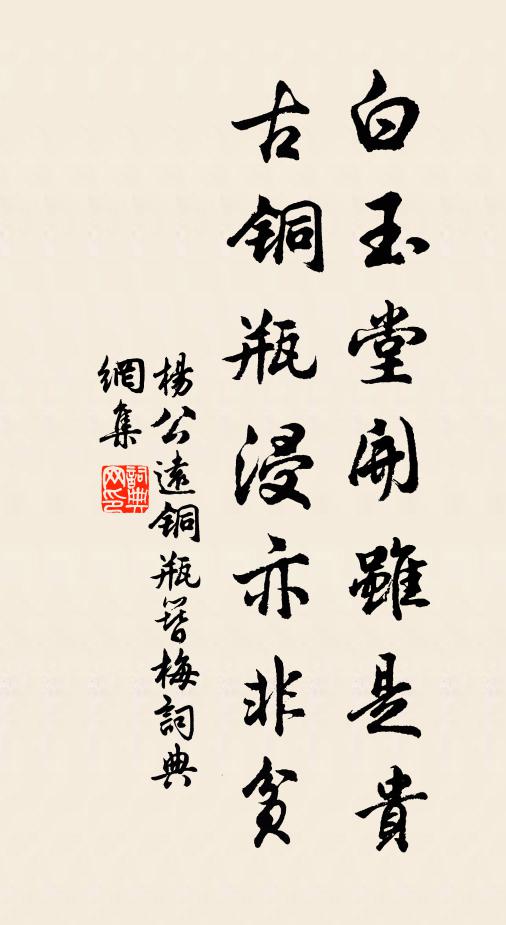 白玉堂開雖是貴
古铜瓶浸亦非貧
楊公遠铜瓶簪梅詞典
網集
詞典
网印